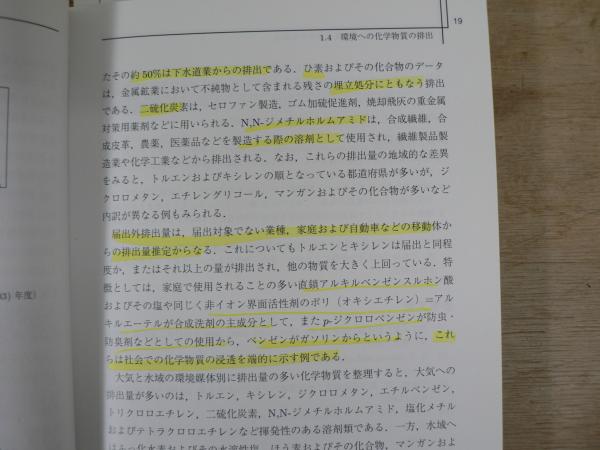 19
1.4 環境への化学物質の排出
たその約50%は下水道業からの排出である．ひ素およびその化合物のデータ
は，金属鉱業において不純物として含まれる残さの埋立処分にともなう排出
である．二硫化炭素は，セロファン製造，ゴム加硫促進剤，焼却飛灰の重金属
対策用薬剤などに用いられる．N,N-ジメチルホルムアミドは，合成繊維，合
成皮革，農薬，医薬品などを製造する際の溶剤として使用され，繊維製品製
造業や化学工業などから排出される．なお，これらの排出量の地域的な差異
をみると，トルエンおよびキシレンの順となっている都道府県が多いが，ジ
クロロメタン，エチレングリコール，マンガンおよびその化合物が多いなど
内訳が異なる例もみられる．
届出外排出量は，届出対象でない業種，家庭および自動車などの移動体か
らの排出量推定からなる．これについてもトルエンとキシレンは届出と同程
度か，またはそれ以上の量が排出され，他の物質を大きく上回っている．特
徴としては，家庭で使用されることの多い直鎖アルキルベンゼンスルホン酸
およびその塩や同じく非イオン界面活性剤のポリ（オキシエチレン）=アル
キルエーテルが合成洗剤の主成分として，またp-ジクロロベンゼンが防虫・
防臭剤などとしての使用から，ベンゼンがガソリンからというように，これ
らは社会での化学物質の浸透を端的に示す例である．
大気と水域の環境媒体別に排出量の多い化学物質を整理すると，大気への
排出量が多いのは，トルエン，キシレン，ジクロロメタン，エチルベンゼン，
トリクロロエチレン，二硫化炭素，N,N-ジメチルホルムアミド，塩化メチル
およびテトラクロロエチレンなど揮発性のある溶剤類である．一方，水域へ
はふっ化水素およびその水溶性塩，ほう素およびその化合物，マンガンおよ
年度)